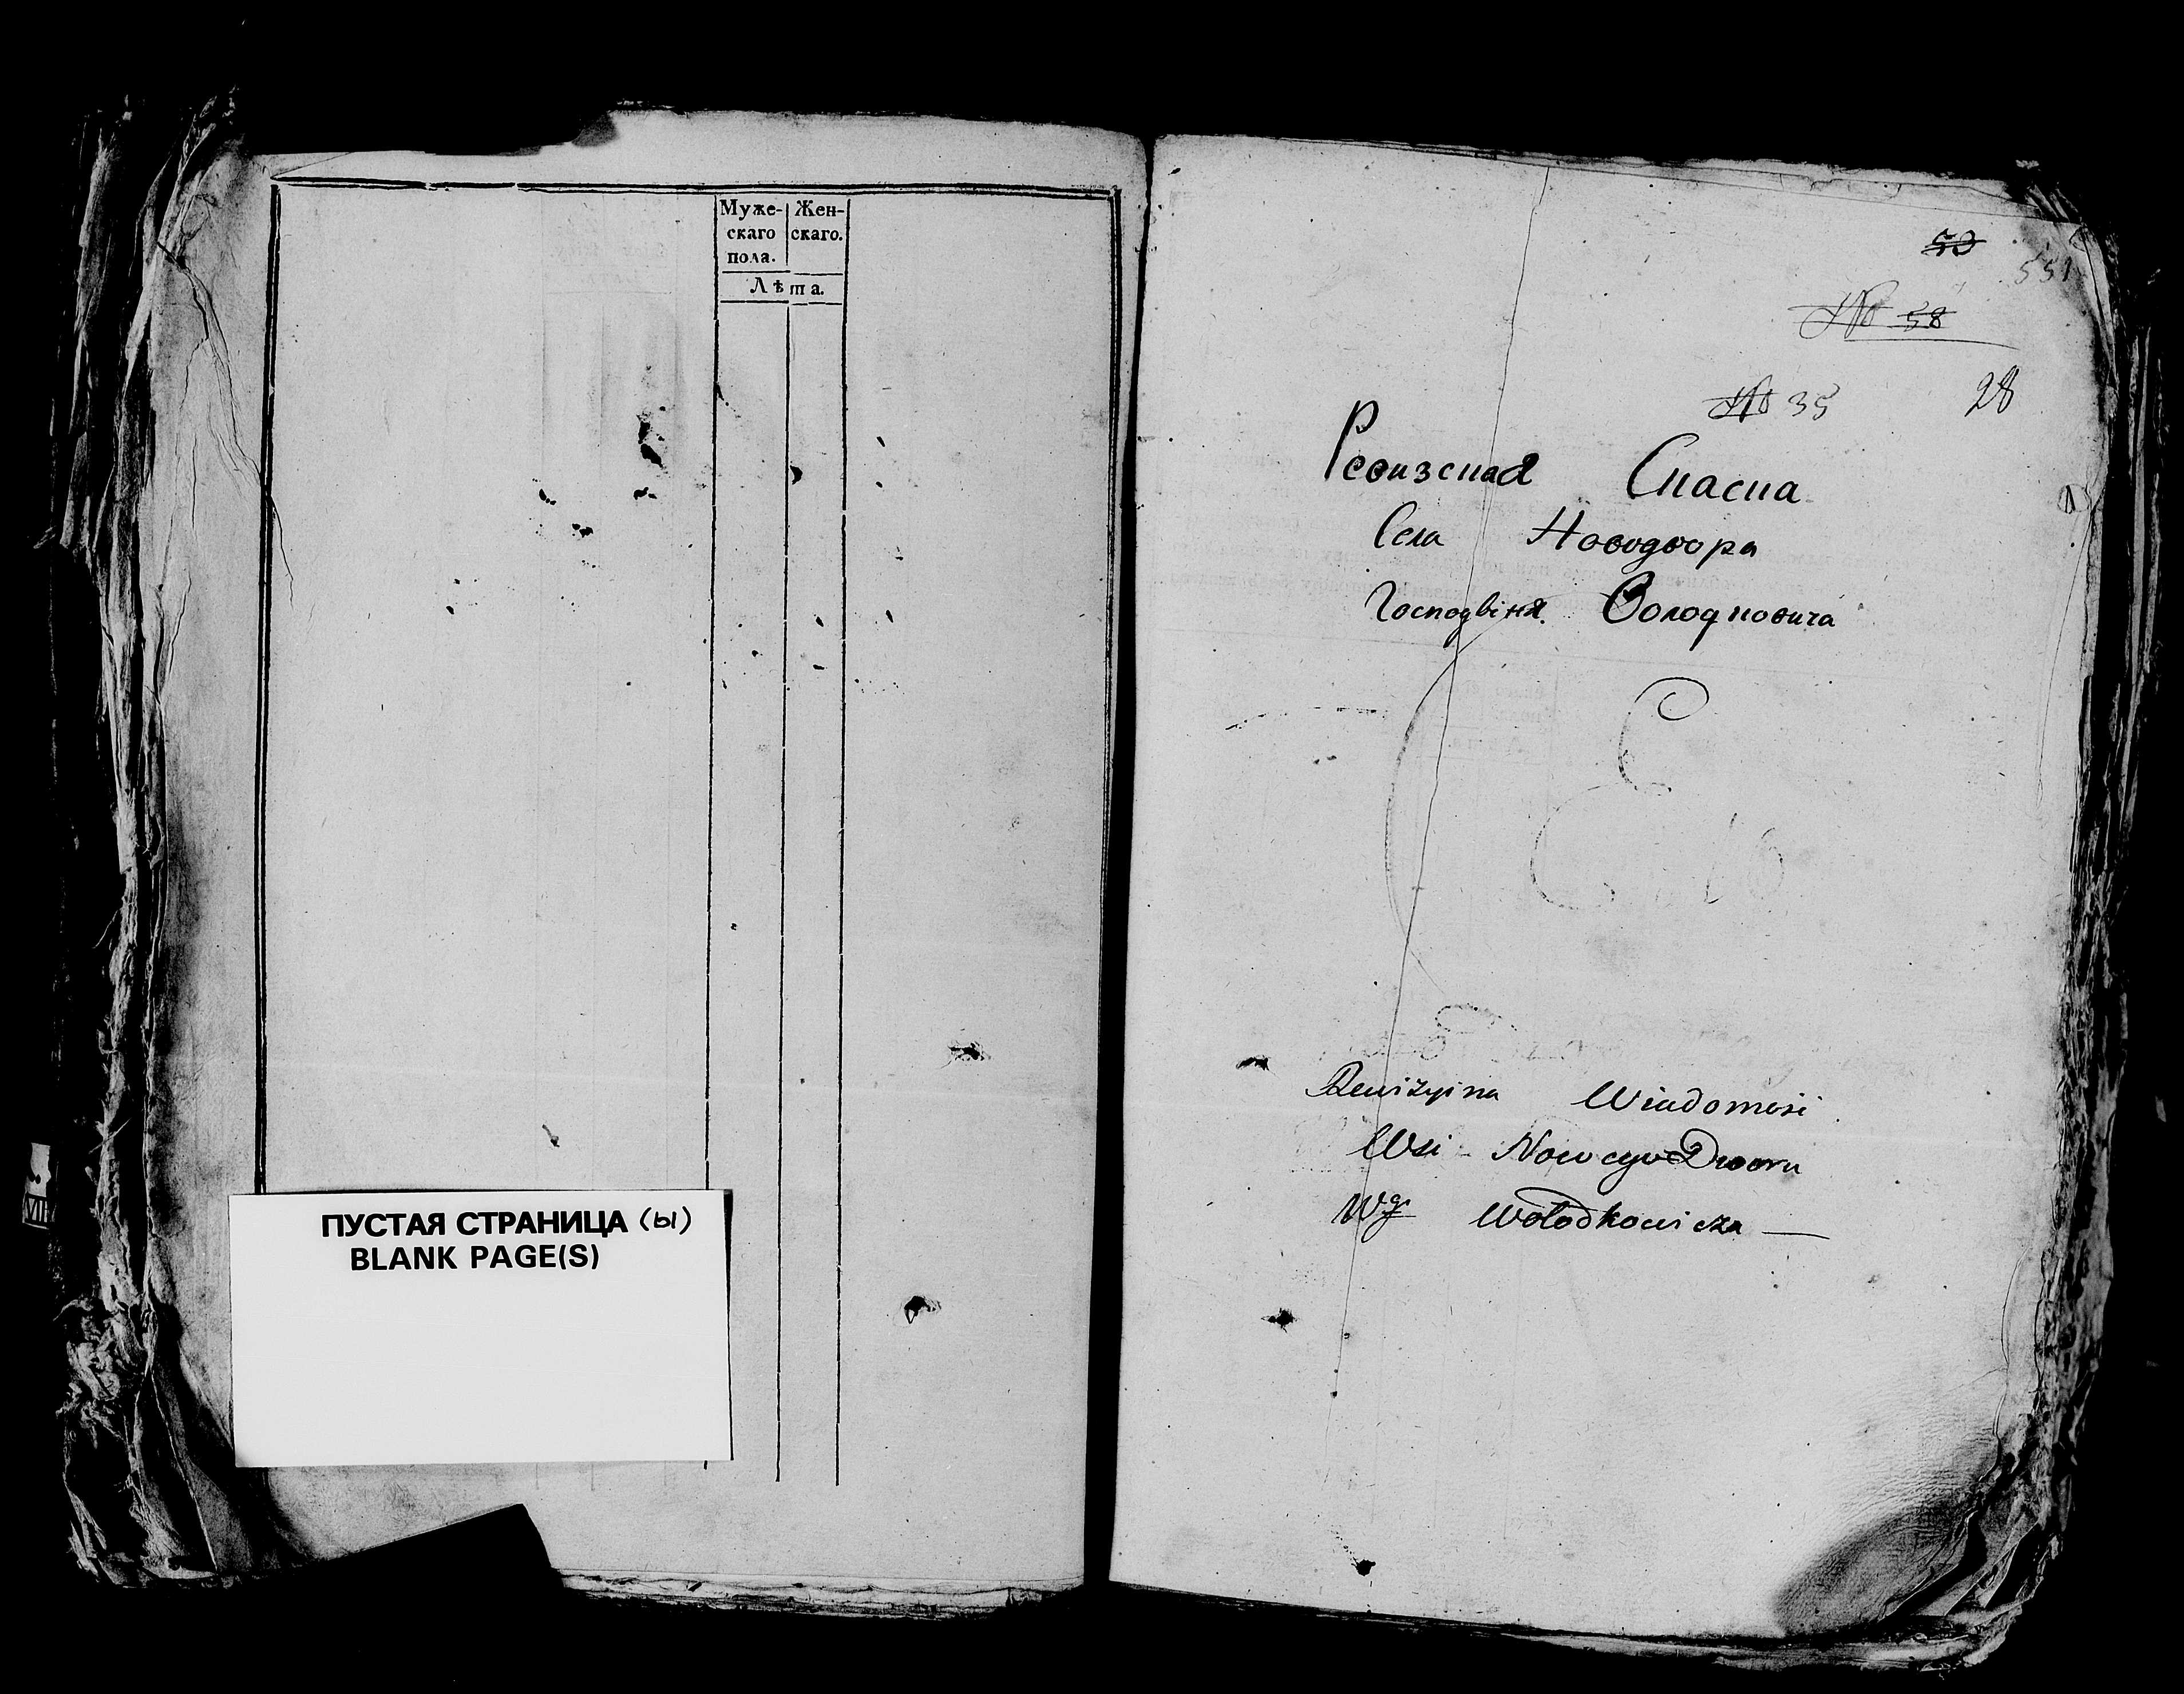 Муже- Жен-
скаго скаго.
пола.
Лѣта.
ПУСТАЯ СТРАНИЦА (ы)
BLANK PAGE(S)
50
551
№ 58
№ 35 28
Ревизская Спаска
Села Новодвора
Володковича
Rewizyina Wiadomość
Wsi Nowego Dworu
Wołodkowicza